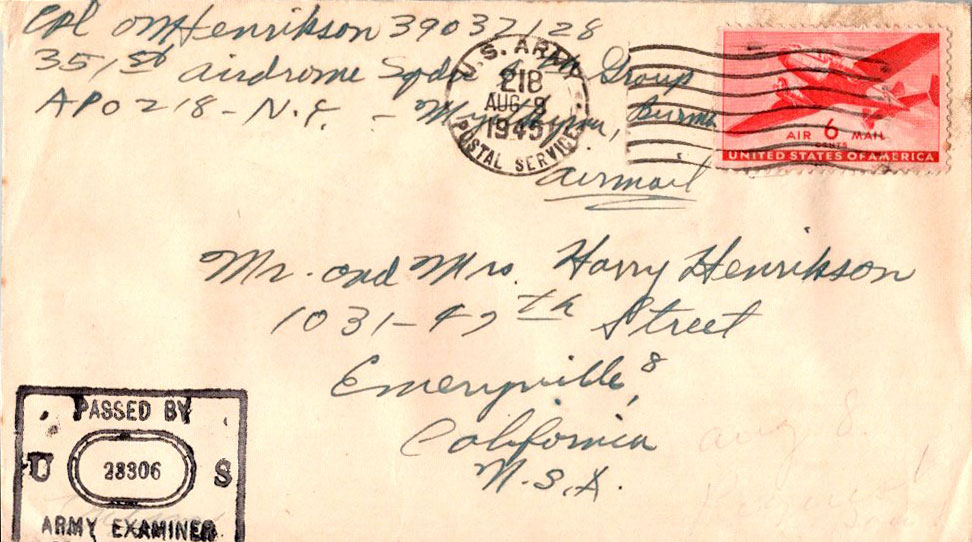 Cpl O M Henrikson 39037128
351st Airdrome Sqdn Group
APO 218 - N.Y. - Myitkyina, Burma
U.S. ARMY
218
AUG 9
1945
POSTAL SERVICE
AIR 6 MAIL
CENTS
UNITED STATES OF AMERICA
airmail
Mr. and Mrs. Harry Henrikson
1031-47th Street
Emeryville 8,
California
U.S.A.
aug 8
PASSED BY
U 28306 S
ARMY EXAMINER